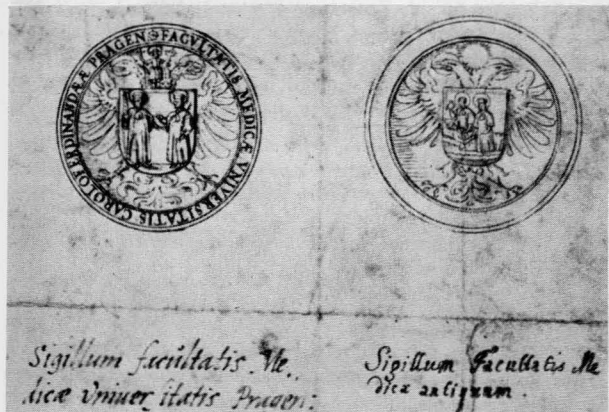 FACVLTATIS MEDICÆ VNIVERSITATIS CAROLOFERDINANDÆÆ PRAGEN
Sigillum facultatis Me.
dicæ Vniversitatis Pragen:
Sigillum Facultatis Me
dicæ antiquum.